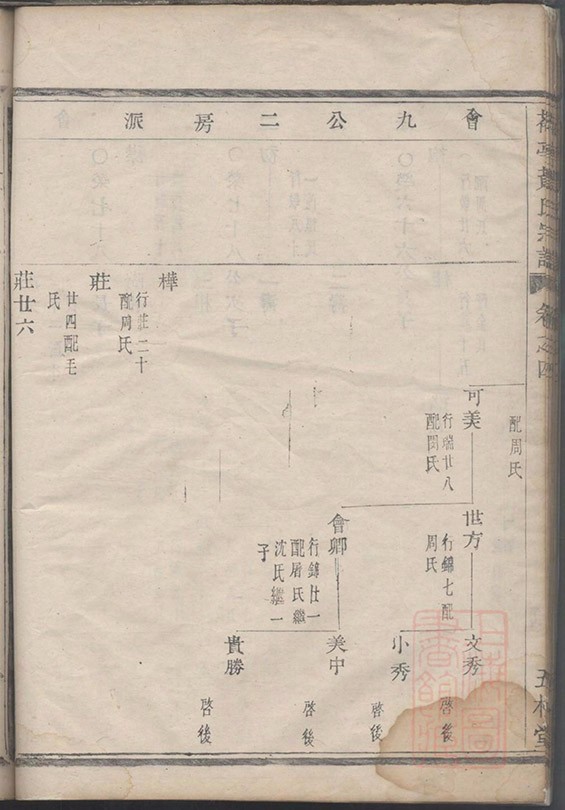 會九公二房派
氏宗譜
卷之四
配周氏
可美
行瑞廿八
配閆氏
世方
行錦七配
周氏
文秀
啓後
小秀
啓後
會卿
行錦廿一
配屠氏繼
沈氏繼一
子
美中
啓後
貴勝
啓後
樺
行莊二十
配周氏
莊
廿四配毛
氏
莊廿六